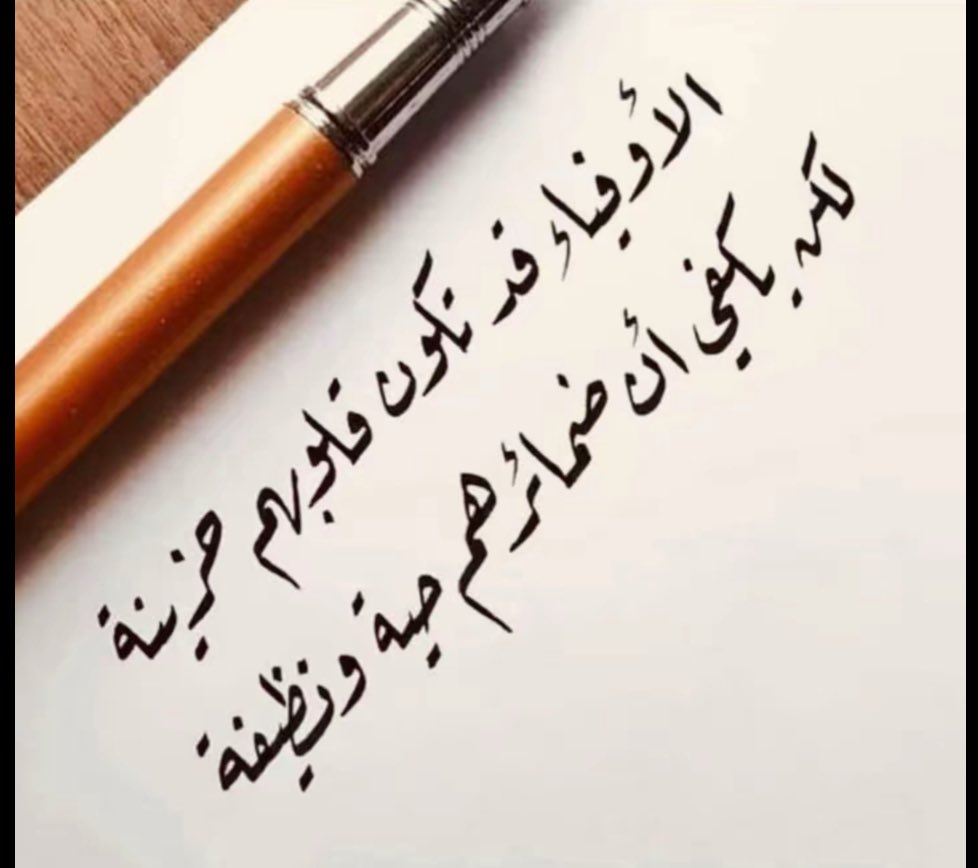 الأوفياء قد تكون قلوبهم حزينة
لكن يكفي أن ضمائرهم حية ونظيفة